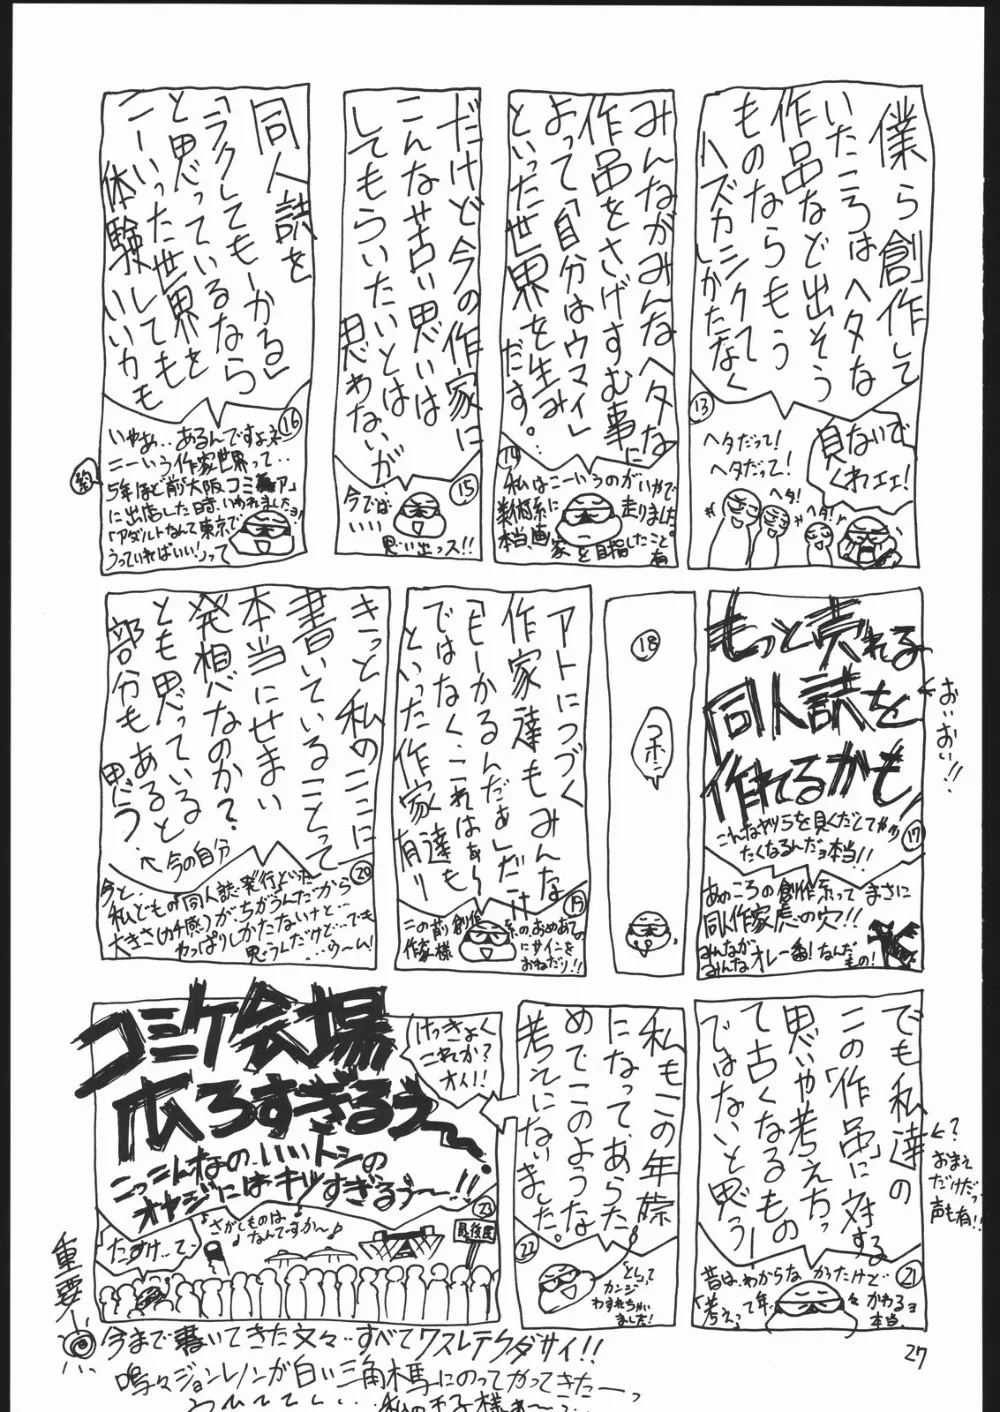 僕ら創作して
いたころはヘタな
作品など出そう
ものならもう
ハズカシクて
しかたなく
13
負ないで
くれェェ!
ヘタだって!
ヘタだって!
ヘタ!
ヘタ!
みんながみんなヘタな
作品をさげすむ事に
よって「自分はウマイ」
といった世界を生み…
だす。
14
私はこーいうのがいやで
美術系に走りました
本当、画家を目指したこと。有
だけど今の作家に
こんな苦い思いは
してもらいたいとは
思わないが
15
今では
いい
思い出っス!!
同人誌を
「ラクしてもーかる」
と思っているなら
こーいった世界を
体験しても
いいかも
16
いやぁ…あるんですよネ
こーいう作家世界って…
5年ほど前大阪コミ
に出店した時、いわれましたョ
「アダルトなんて東京で
うっていればいい!」って
もっと売れる
同人誌を
作れるかも!
おいおい!!
17
こんなヤツらを見くだしてやり
たくなるんだョ本当!!
あのころの創作系ってまさに
同人作家虎の穴!!
みんなが
みんなオレ一番!なんだ
もの!
18
コホン
アトにつづく
作家達もみんな
「もーかるんだぁ」だけ
ではなく、これはぁ〜
といった作家達も
有り
19
この前創作系の、おめあての
作家様にサインを
おねだり!!
きっと私のここに
書いていることって
本当にせまい
発想なのか?
とも思っている
部分もあると
思う。
←今の自分
20
今と…
私どもの「同人誌・発行といった
大きさ(カチ感)がちがうんだから
やっぱりしかたないけど…
思うんだけど…でも
…ウーム!
でも私達の
この「作品」に対する
思いや考え方っ
て古くなるもの
ではないと思う!
←?
おまえ
だけだっ
声も有!!
21
昔は、わからなかったけど
「考えって年々かわるョ
本当。
私もこの年際
になって、あらた
めてこのような
考えにないきました。
22
「とし」って
カンジ
わすれちゃい
ました!
けっきょく
これか?
オイ!!
コミケ会場
広ろすぎるぅ〜
こっこんなの、いいトシの
オヤジにはキツすぎるぅ〜!!
23
♪さがしものは
なんですか〜♪
たすけ…て…
最後尾
重要!
今まで書いてきた文々…すべてワスレテクダサイ!!
嗚々ジョンレノンが白い三角木馬にのってやってきたーっ
27